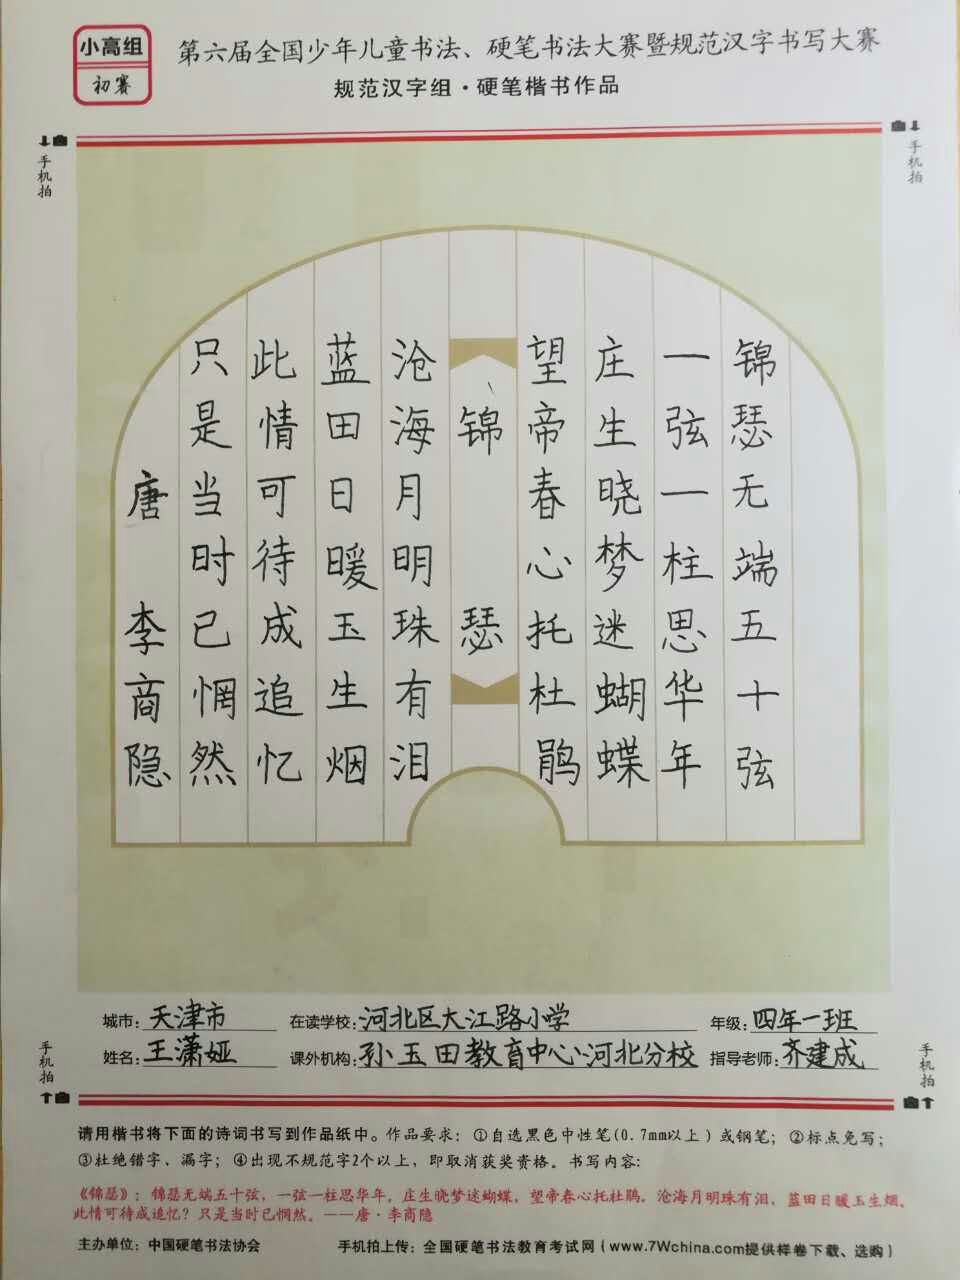 小高组
初赛
第六届全国少年儿童书法、硬笔书法大赛暨规范汉字书写大赛
规范汉字组·硬笔楷书作品
手机拍
手机拍
锦瑟无端五十弦
一弦一柱思华年
庄生晓梦迷蝴蝶
望帝春心托杜鹃
锦瑟
沧海月明珠有泪
蓝田日暖玉生烟
此情可待成追忆
只是当时已惘然
唐 李商隐
城市:天津市 在读学校:河北区大江路小学 年级:四年一班
姓名:王潇娅 课外机构:孙玉田教育中心·河北分校 指导老师:齐建成
手机拍
手机拍
请用楷书将下面的诗词书写到作品纸中。作品要求：①自选黑色中性笔(0.7mm以上）或钢笔；②标点免写；
③杜绝错字、漏字；④出现不规范字2个以上，即取消获奖资格。书写内容:
《锦瑟》：锦瑟无端五十弦，一弦一柱思华年。庄生晓梦迷蝴蝶，望帝春心托杜鹃。沧海月明珠有泪，蓝田日暖玉生烟。
此情可待成追忆？只是当时已惘然。——唐·李商隐
主办单位：中国硬笔书法协会 手机拍上传：全国硬笔书法教育考试网（www.7Wchina.com提供样卷下载、选购）